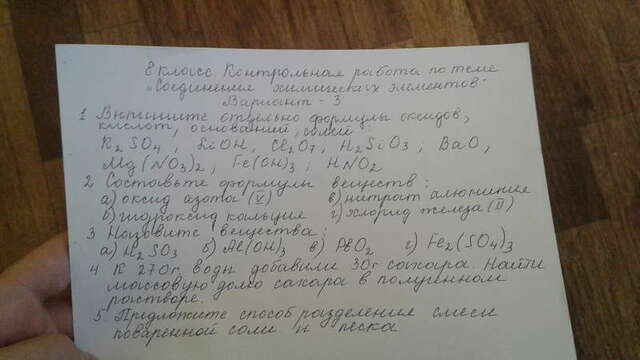 8 класс. Контрольная работа по теме
"Соединения химических элементов"
Вариант - 3
1 Выпишите отдельно формулы оксидов,
кислот, оснований, солей:
K2SO4, LiOH, Cl2O7, H2SiO3; BaO,
Mg(NO3)2, Fe(OH)3; HNO2
2 Составьте формулы веществ:
а) оксид азота (V) в) нитрат алюминия
б) гидроксид кальция г) хлорид железа (II)
3 Назовите вещества:
а) H2SO3 б) Al(OH)3 в) PbO2 г) Fe2(SO4)3
4 К 270г. воды добавили 30г сахара. Найти
массовую долю сахара в полученном
растворе.
5. Предложите способ разделения смеси
поваренной соли и песка